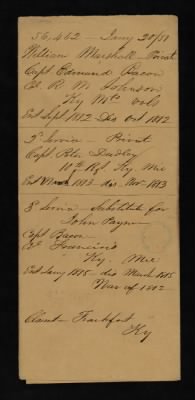 56,462 — Jany 20/51
William Marshall — Privat
Capt Edmund Bacon
Col R M Johnson
Ky Mtd Vols
Ent Sept 1812 Dis Oct 1812
2d Service — Privat
Capt Peter Dudley
10th Rgt Ky Mie
Ent March 1813 dis Nov 1813
3d Service Substitute for
John Payne
Capt Bacon
Col Francisco
Ky. Mie
Ent Jany 1815 — dis March 1815
War of 1812 —
Claimt — Frankfort
Ky